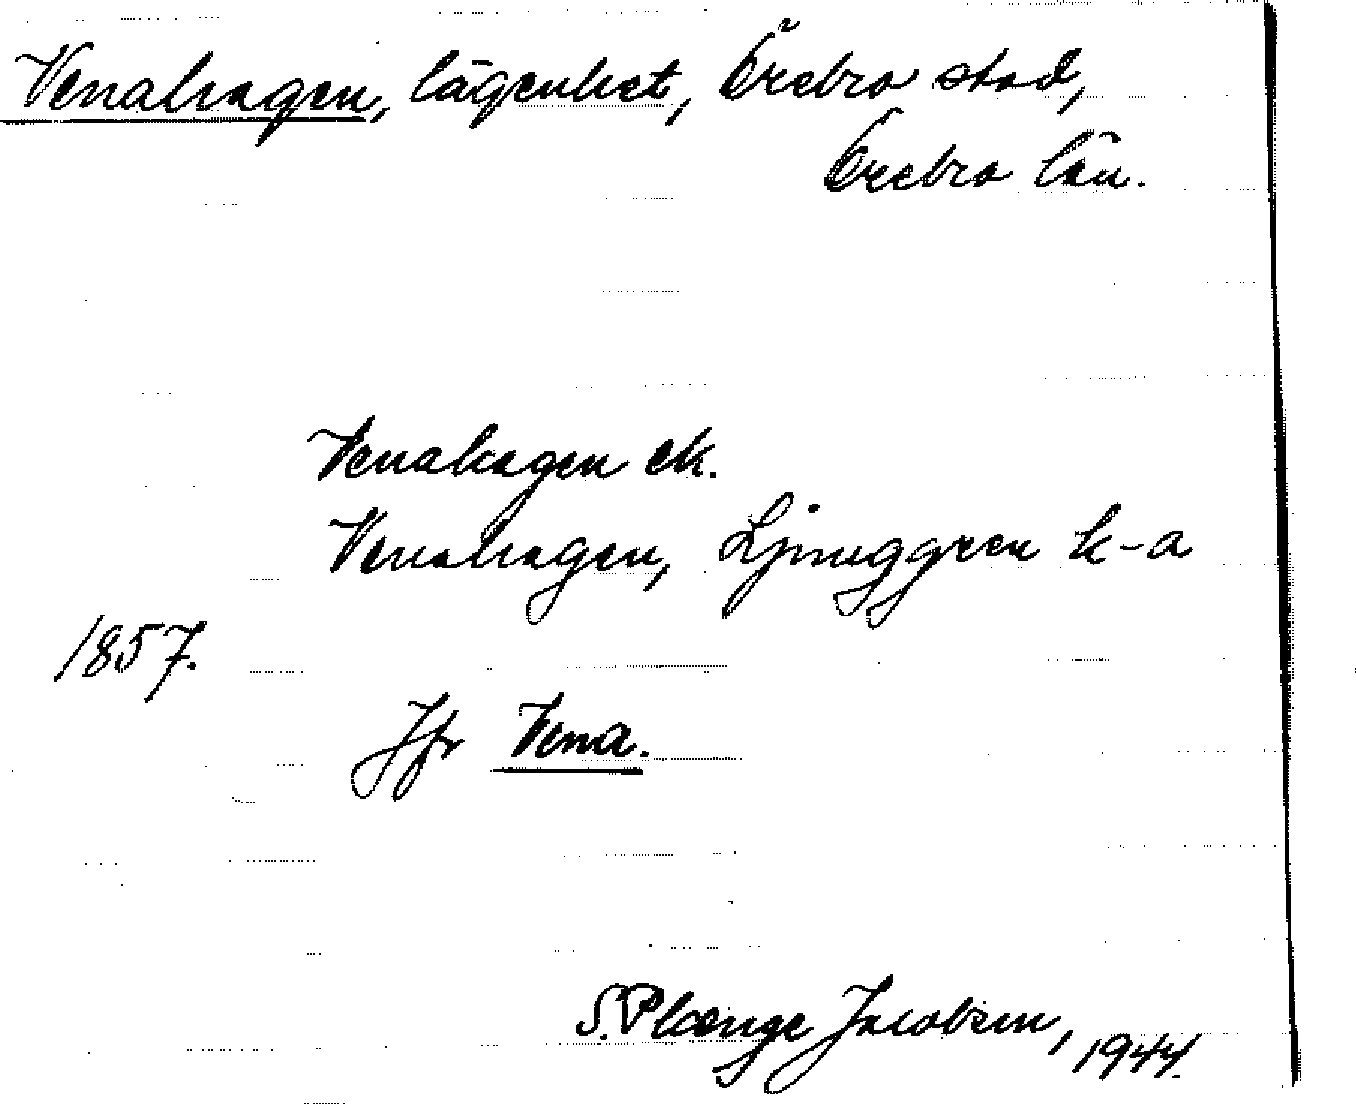 Venahagen, lägenhet, Örebro stad,
Örebro län.
Venahagen ek.
Venahagen, Ljunggren k-a
1857.
Jfr Vena.
S. Plænge Jacobsen, 1944.